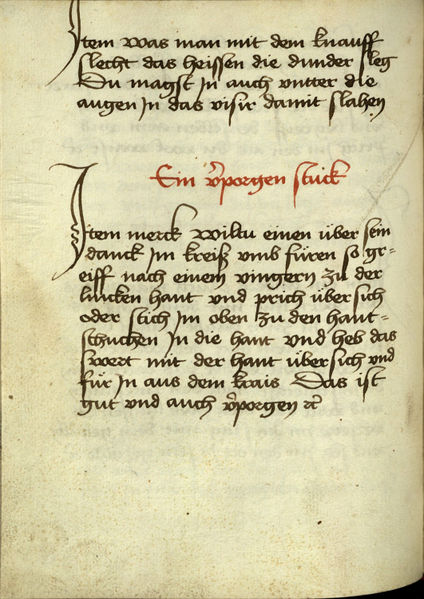 Item was man mit dem knauff
slecht das heissen die dunder sleg
Du magst jn auch vntter die
augen jn das visir damit slahen
Ein v̄porgen stuck
Item merck wiltu einen über sein
danck jm kreiß vmb füren so gr-
eiff nach einem vingern zu der
lincken hant vnd prich über sich
oder stich jm oben zu den hant-
schuchen jn die hant vnd heb das
swert mit der hant über sich vnd
für jn aus dem krais Das ist
gut vnd auch v̄porgen ꝛc̄